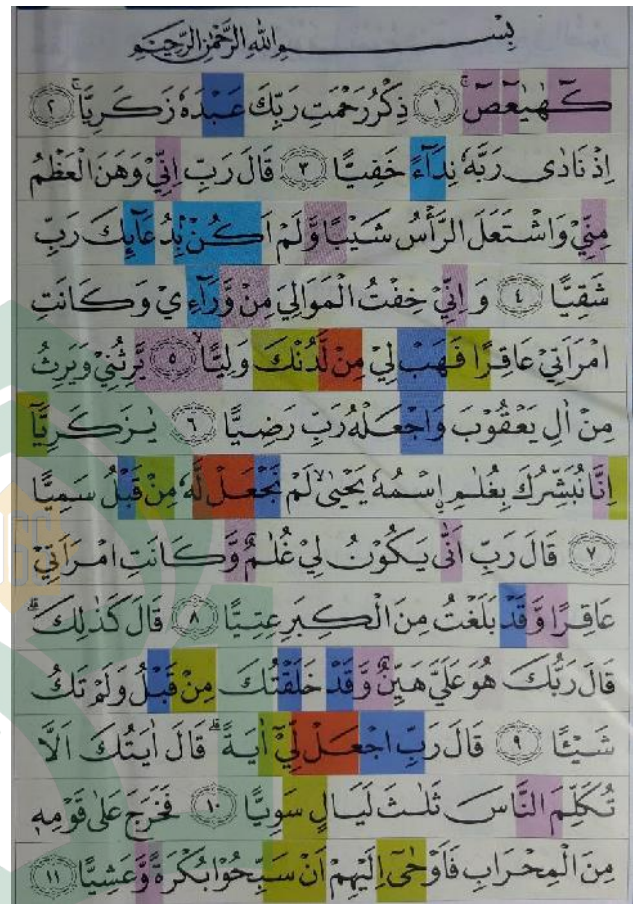 بِسْــــــمِ اللّٰهِ الرَّحْمٰنِ الرَّحِيْمِ
كۤهٰيٰعۤصۤ ۚ ۝١ ذِكْرُ رَحْمَتِ رَبِّكَ عَبْدَهٗ زَكَرِيَّا ۚ ۝٢
اِذْ نَادٰى رَبَّهٗ نِدَاۤءً خَفِيًّا ۝٣ قَالَ رَبِّ اِنِّيْ وَهَنَ الْعَظْمُ
مِنِّيْ وَاشْتَعَلَ الرَّأْسُ شَيْبًا وَّلَمْ اَكُنْۢ بِدُعَاۤىِٕكَ رَبِّ
شَقِيًّا ۝٤ وَاِنِّيْ خِفْتُ الْمَوَالِيَ مِنْ وَّرَاۤءِيْ وَكَانَتِ
امْرَاَتِيْ عَاقِرًا فَهَبْ لِيْ مِنْ لَّدُنْكَ وَلِيًّا ۙ ۝٥ يَّرِثُنِيْ وَيَرِثُ
مِنْ اٰلِ يَعْقُوْبَ وَاجْعَلْهُ رَبِّ رَضِيًّا ۝٦ يٰزَكَرِيَّآ
اِنَّا نُبَشِّرُكَ بِغُلٰمِ ࣙاسْمُهٗ يَحْيٰىۙ لَمْ نَجْعَلْ لَّهٗ مِنْ قَبْلُ سَمِيًّا
۝٧ قَالَ رَبِّ اَنّٰى يَكُوْنُ لِيْ غُلٰمٌ وَّكَانَتِ امْرَاَتِيْ
عَاقِرًا وَّقَدْ بَلَغْتُ مِنَ الْكِبَرِ عِتِيًّا ۝٨ قَالَ كَذٰلِكَۗ
قَالَ رَبُّكَ هُوَ عَلَيَّ هَيِّنٌ وَّقَدْ خَلَقْتُكَ مِنْ قَبْلُ وَلَمْ تَكُ
شَيْـًٔا ۝٩ قَالَ رَبِّ اجْعَلْ لِّيْٓ اٰيَةً ۗقَالَ اٰيَتُكَ اَلَّا
تُكَلِّمَ النَّاسَ ثَلٰثَ لَيَالٍ سَوِيًّا ۝١٠ فَخَرَجَ عَلٰى قَوْمِهٖ
مِنَ الْمِحْرَابِ فَاَوْحٰٓى اِلَيْهِمْ اَنْ سَبِّحُوْا بُكْرَةً وَّعَشِيًّا ۝١١